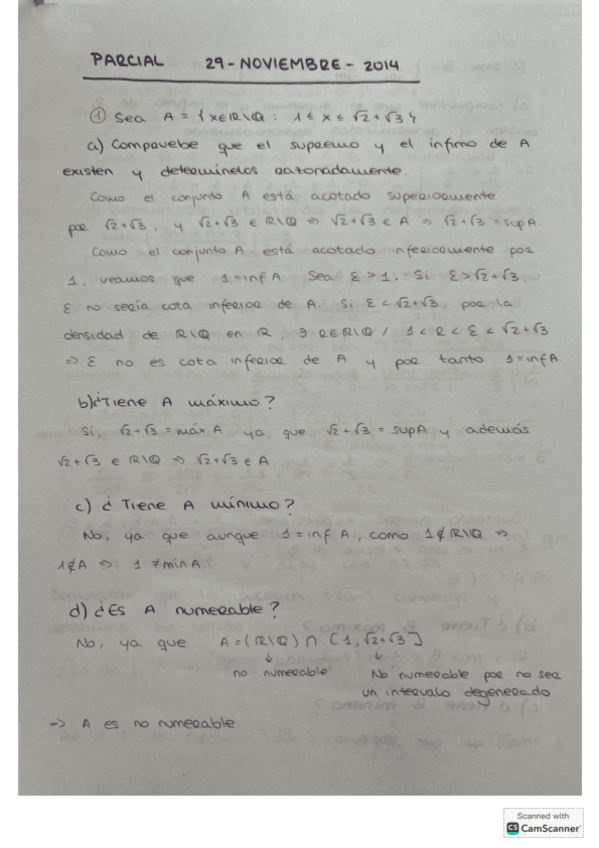 PARCIAL 29-NOVIEMBRE-2014
① Sea A = { x∈R\Q : 1 ≤ x ≤ √2+√3 }
a) Compruebe que el supremo y el ínfimo de A
existen y determínelos razonadamente.
Como el conjunto A está acotado superiormente
por √2+√3, y √2+√3 ∈ R\Q ⇒ √2+√3 ∈ A ⇒ √2+√3 = sup A
Como el conjunto A está acotado inferiormente por
1, veamos que 1 = inf A Sea ε > 1. Si ε > √2+√3,
ε no sería cota inferior de A. Si ε < √2+√3, por la
densidad de R\Q en R, ∃ r∈R\Q / 1 < r < ε < √2+√3
⇒ ε no es cota inferior de A y por tanto 1 = inf A.
b) ¿Tiene A máximo?
Si, √2+√3 = máx A ya que √2+√3 = sup A y además
√2+√3 ∈ R\Q ⇒ √2+√3 ∈ A
c) ¿Tiene A mínimo?
No, ya que aunque 1 = inf A, como 1 ∉ R\Q ⇒
1 ∉ A ⇒ 1 ≠ min A
d) ¿Es A numerable?
No, ya que A = (R\Q) ∩ [1, √2+√3]
↓ ↓
no numerable No numerable por no ser
un intervalo degenerado
⇒ A es no numerable
Scanned with
CS CamScanner